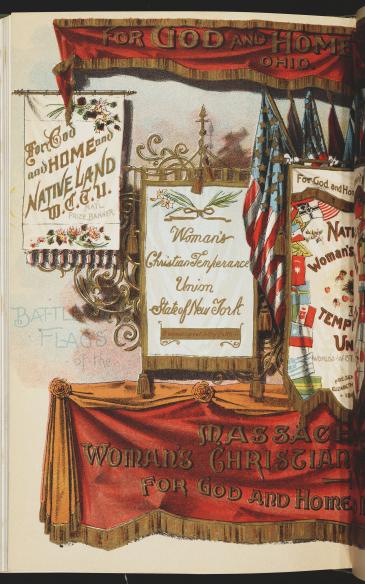 FOR GOD AND HOME
OHIO
For God
and HOME and
NATIVE LAND
W.C.T.U.
NAT'L
PRIZE BANNER
Woman's
Christian Temperance
Union
State of New York
For God and Hom
NATI
Woman's
TEMP
UN
WORLD'S W.C.T.
BATTLE
FLAGS
of the
MASSAC
WOMAN'S CHRISTIAN
FOR GOD AND HOME